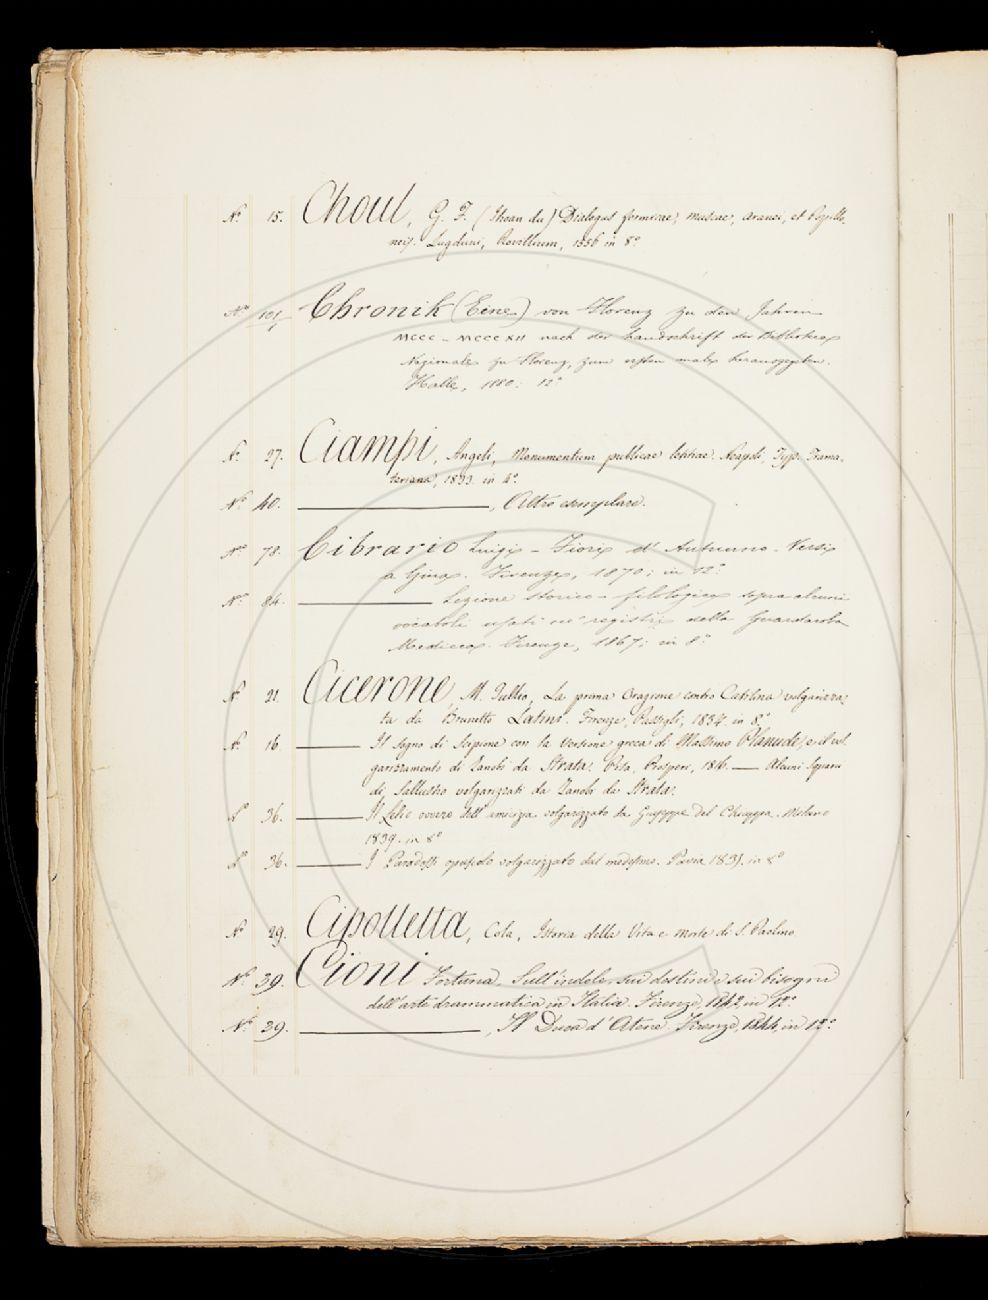 Nº 15. Choul, G. F. (Jhoan du) Dialogus formicae, muscae, aranei, et Papilio-
neis. Lugduni, Rovillium, 1556 in 8º
Nº 101/1 Chronik (Eine) von Florenz zu den Jahren
MCCC - MCCCXII nach der handschrift der Bibliotheca
Nazionale zu Florenz, zum ersten male herausgegeben.
Halle, 1880: 12º
Nº 27. Ciampi, Angeli, Monumentum publicae Neapoli, Typ. Trama-
teriana, 1833. in 4º.
Nº 40. ———, Altro esemplare.
Nº 78. Cibrario Luigi - Fiori d'Autunno - Versi
a Gina. Firenze, 1870; in 12º
Nº 84. ——— Lezione storico-filologica sopra alcuni
vocaboli usati ne' registri della Guardaroba
Medicea. Firenze, 1867; in 8º
Nº 21. Cicerone M. Tullio, La prima Orazione contro Catilina volgarizza-
ta da Brunetto Latini. Firenze, Passigli, 1834 in 8º
Nº 16. ——— Il sogno di Scipione con la versione greca di Massimo Planude, e il vol-
garizzamento di Zanobi da Strata. Pisa, Prosperi, 1816. — Alcuni Squarci
di Sallustio volgarizzati da Zanobi da Strata.
Nº 36. ——— Il Lelio ovvero dell'amicizia volgarizzato da Giuseppe del Chiappa. Milano
1839. in 8º
Nº 36. ——— I Paradossi opuscolo volgarizzato dal medesimo. Pavia 183. in 8º
Nº 29. Cipolletta, Cola, Istoria della Vita e morte di S. Paolino
Nº 39. Cioni Fortuna, Sull'indole, sui destini e sui bisogni
dell'arte drammatica in Italia. Firenze, 1842, in 12º
Nº 39. ———, Il Duca d'Atene. Firenze, 1844, in 12º.